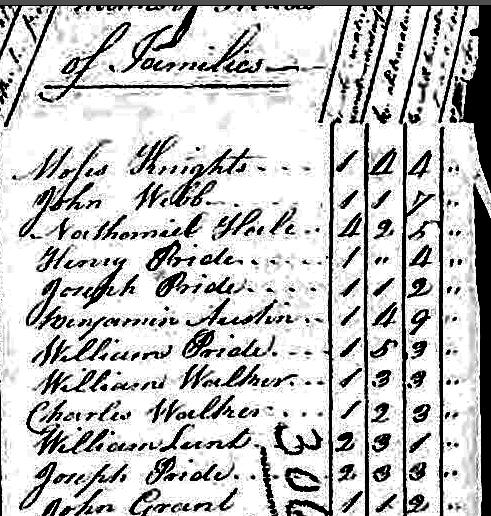 of Families
Moses Knights 1 4 4 "
John Webb 1 1 7 "
Nathaniel Hale 4 2 5 "
Henry Pride 1 " 4 "
Joseph Pride 1 1 2 "
Benjamin Austin 1 4 9 "
William Pride 1 5 3 "
William Walker 1 3 3 "
Charles Walker 1 2 3 "
William Lunt 2 3 1 "
Joseph Pride 2 3 3 "
John Grant 1 1 2 "